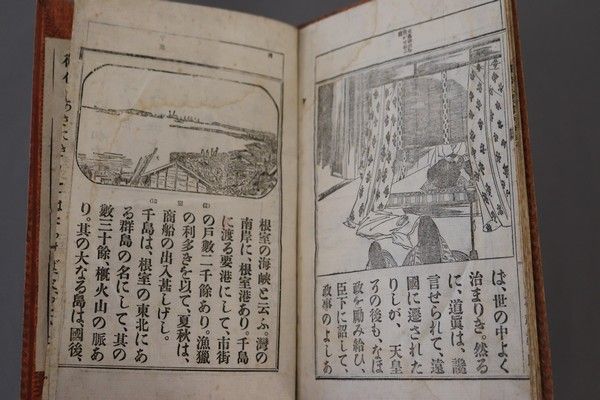 は、世の中よく
治まりき。然る
に、道眞は、讒
言せられて、遠
國に遷された
りしが、天皇
その後も、なほ
政を勵み給ひ、
臣下に詔して、
政事のよしあ
根室の海峽と云ふ。灣の
南岸に、根室港あり。千島
に渡る要港にして、市街
の戸數二千餘あり。漁獵
の利多きを以て、夏秋は、
商船の出入甚しげし。
千島は、根室の東北にあ
る群島の名にして、其の
數三十餘、概火山の脈あ
り。其の大なる島は、國後、